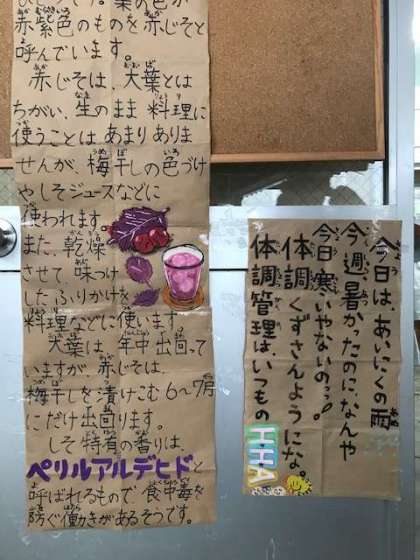 赤紫色のものを赤じそと
呼んでいます。
赤じそは、大葉とは
ちがい、生のまま料理に
使うことはあまりありま
せんが、梅干しの色づけ
やしそジュースなどに
使われます。
また、乾燥
させて、味つけ
したふりかけを
料理などに使います。
大葉は、年中出回って
いますが、赤じそは、
梅干しを漬けこむ6〜7月
にだけ出回ります。
しそ特有の香りは、
ペリルアルデヒドと
呼ばれるもので食中毒を
防ぐ働きがあるそうです。
今日は、あいにくの雨
今週暑かったのに、なんや
今日寒いやないのっ!
体調くずさんようにな。
体調管理は、いつもの
H・H・A